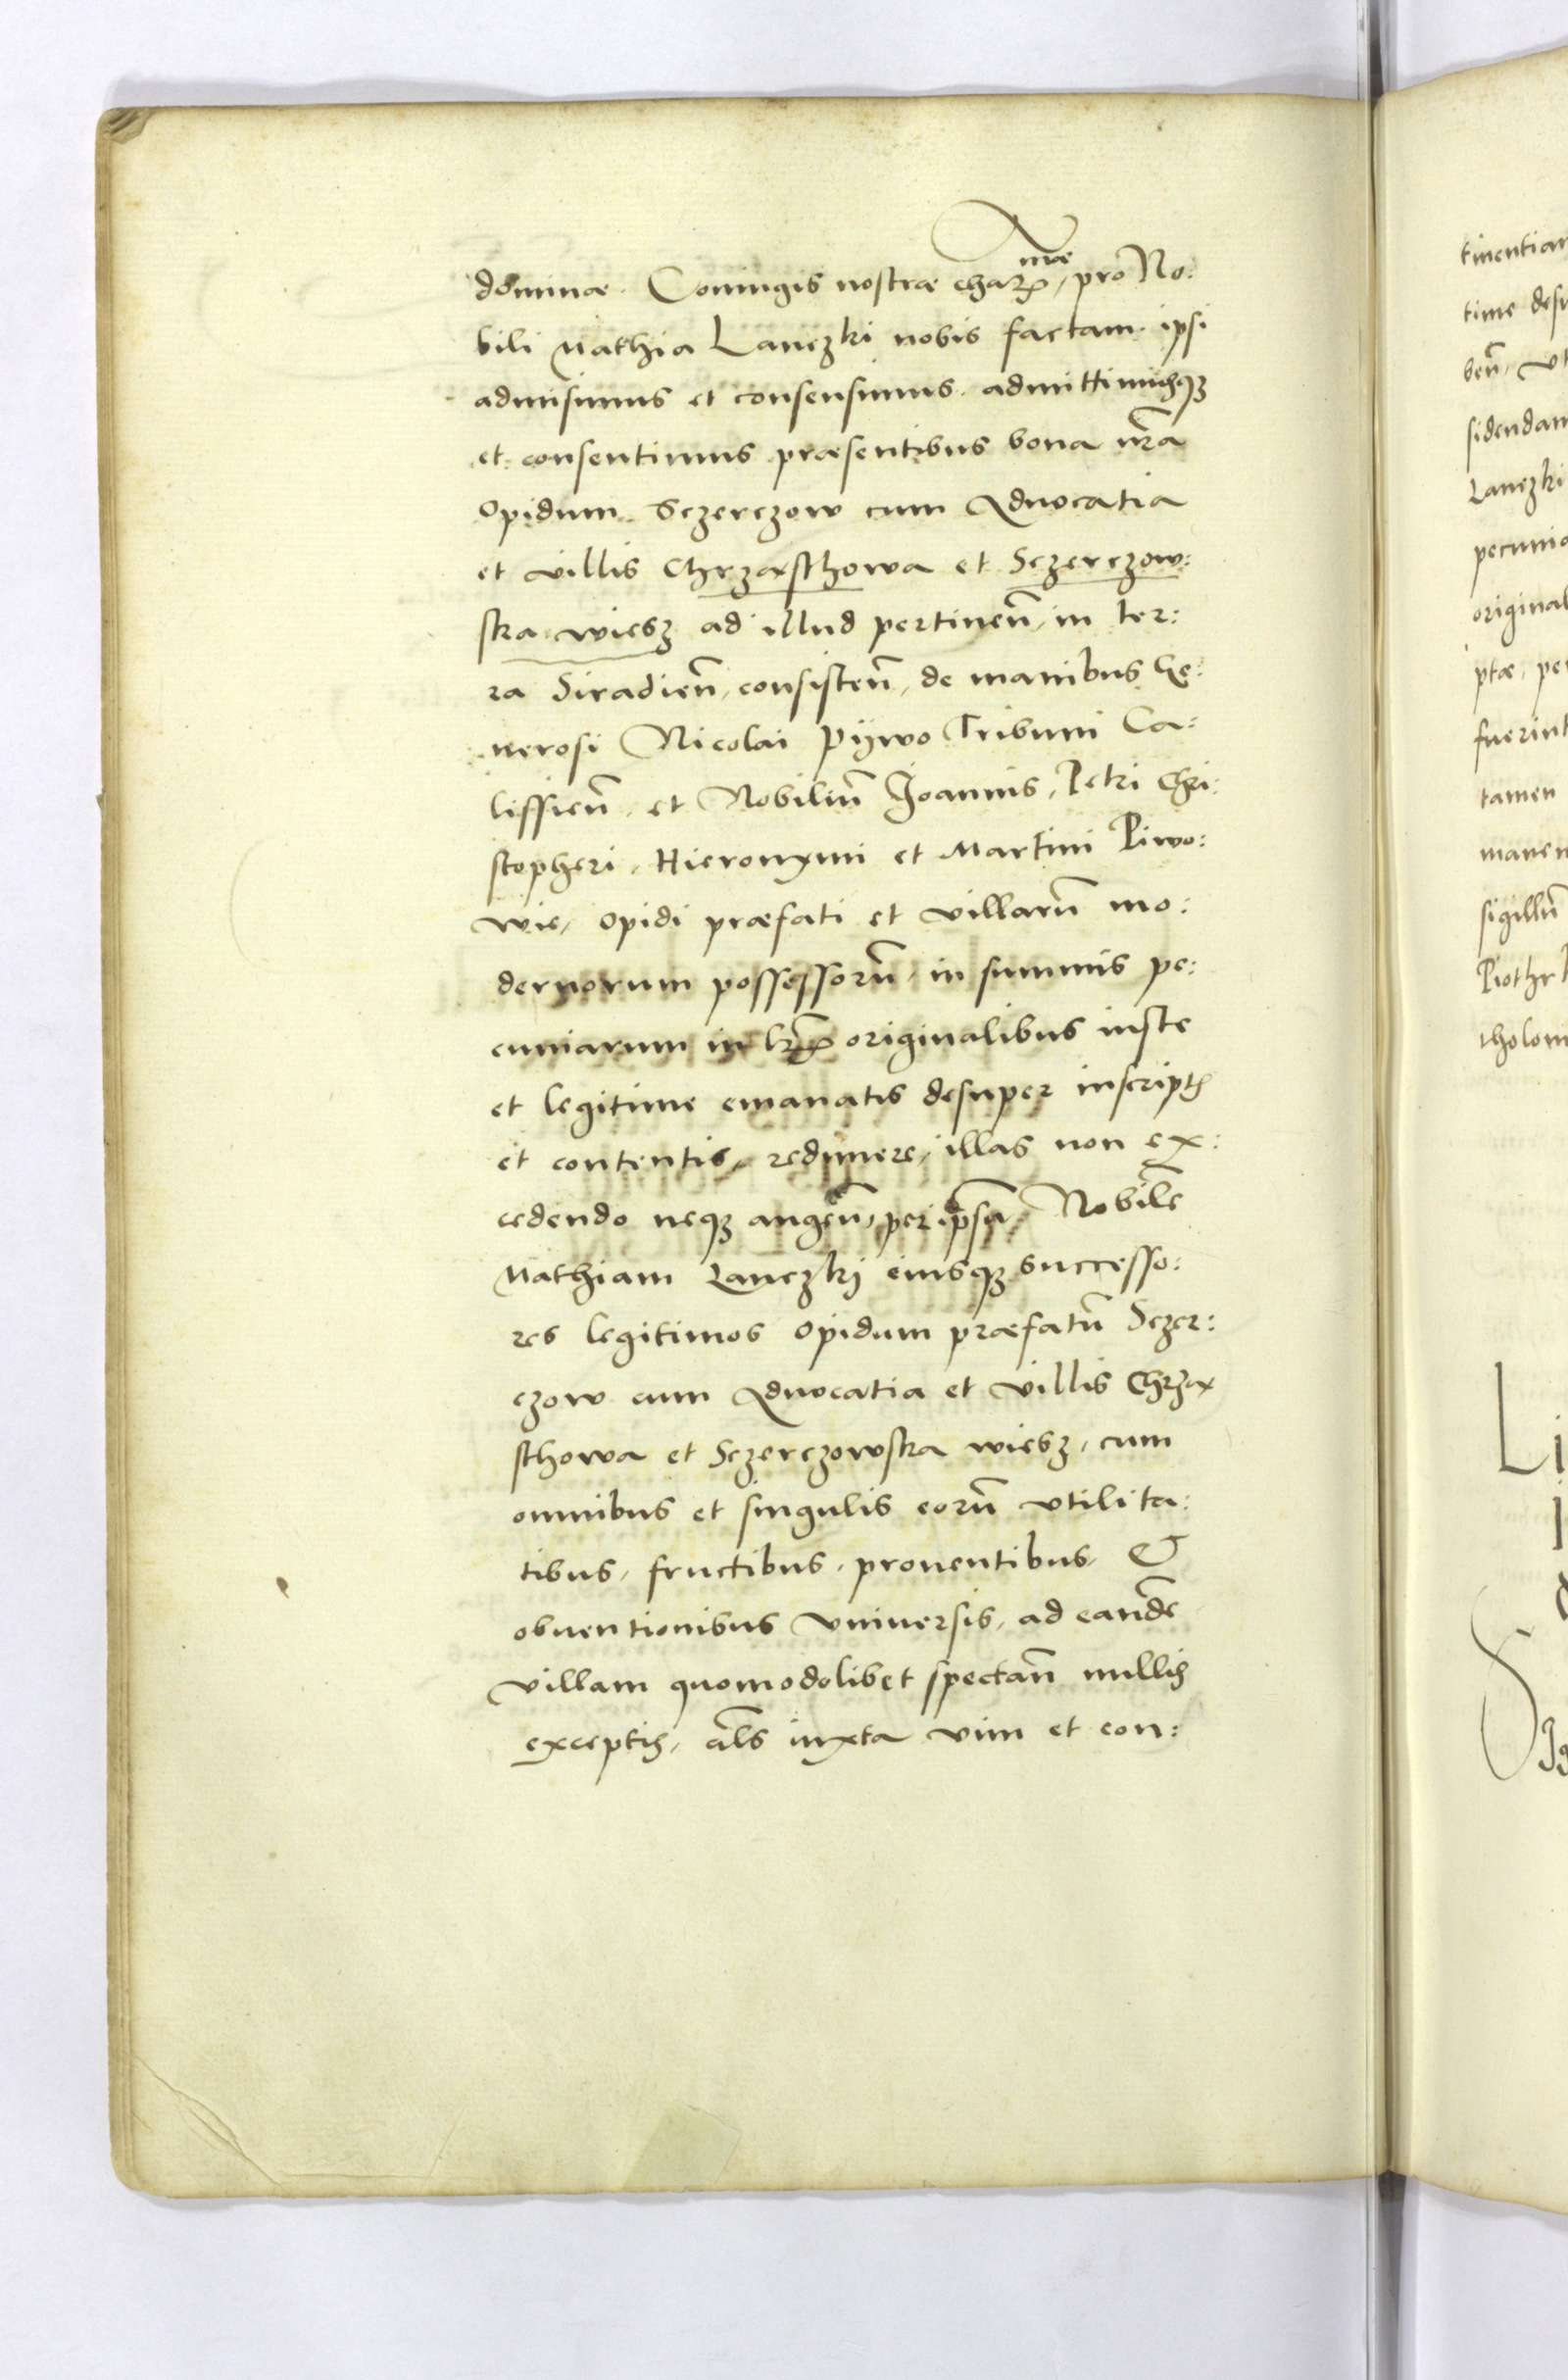 dominæ. Coniugis nostræ char^mæ, pro No:
bili Mathia Lanczki nobis factam. ipsi
admisimus et consensimus. admittimusq3
et consentimus præsentibus bona nr̃a
Opidum Sczerczow cum Aduocatia
et villis Chrzasthowa et Sczerczow:
ska wiesz ad illud pertineñ, in ter:
ra Siradieñ, consisteñ, de manibus Ge:
nerosi Nicolai Pywo Tribuni Ca:
lissieñ, et Nobiliũ Joannis, Petri Chri:
stopheri, Hieronymi et Martini Piwo:
wie, Opidi præfati et villarũ mo:
dernorum possessorũ, in summis pe:
cuniarum in lr̃is originalibus iuste
et legitime emanatis desuper inscriptis
et contentis, redimere, illas non ex:
cedendo neq3 augeñ, per ipsũ, Nobilẽ
Mathiam Lanczkj eiusq3 successo:
res legitimos Opidum præfatũ Sczer:
czow cum Aduocatia et villis Chrza
sthowa et Sczerczowska wiesz, cum
omnibus et singulis eorũ vtilita:
tibus, fructibus, prouentibus, Et
obuentionibus vniuersis, ad eandẽ
villam quomodolibet spectañ nullis
exceptis, al̃s iuxta vim et con:
tinentiar
time desu
beñ, vt
sidendam
Lanczki
pecunia
original
ptæ, per
fuerint
tamen
manen
sigillũ
Piothr
tholom
Li